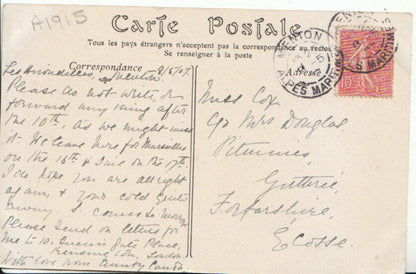 A1915
Carte Postale
Tous les pays étrangers n'acceptent pas la correspondance au recto
Correspondance
Adresse
MENTON
ALPES MARITIMES
Les Hirondelles, Menton. 8/5/07.
Please do not write or
forward any thing after
the 10th, as we might miss
it. We leave here for Marseilles
on the 16th & sail on the 17th.
I do hope you are all right
again, & your cold quite
away.
Please send on letters for
me to 10. Queen's Gate Place,
Kensington, London
With love from
Miss Cox,
c/o Mrs Douglas,
Guthrie,
Forfarshire,
Ecosse.